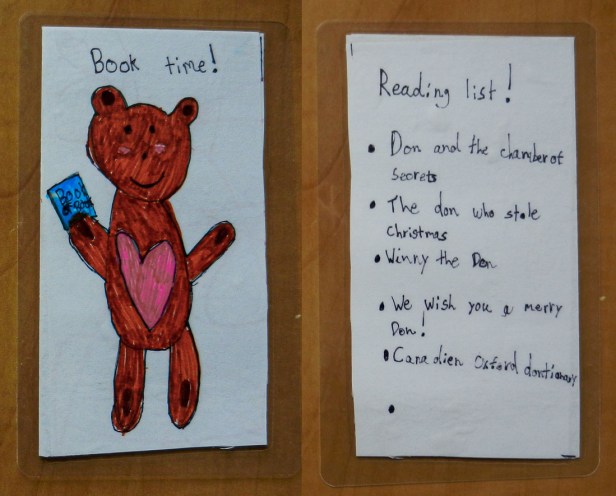 Book time!
Book
of Book
Reading list!
• Don and the chamber of
Secrets
• The don who stole
christmas
• Winny the Don
• We wish you a merry
Don!
• Canadien Oxford dontionary
•